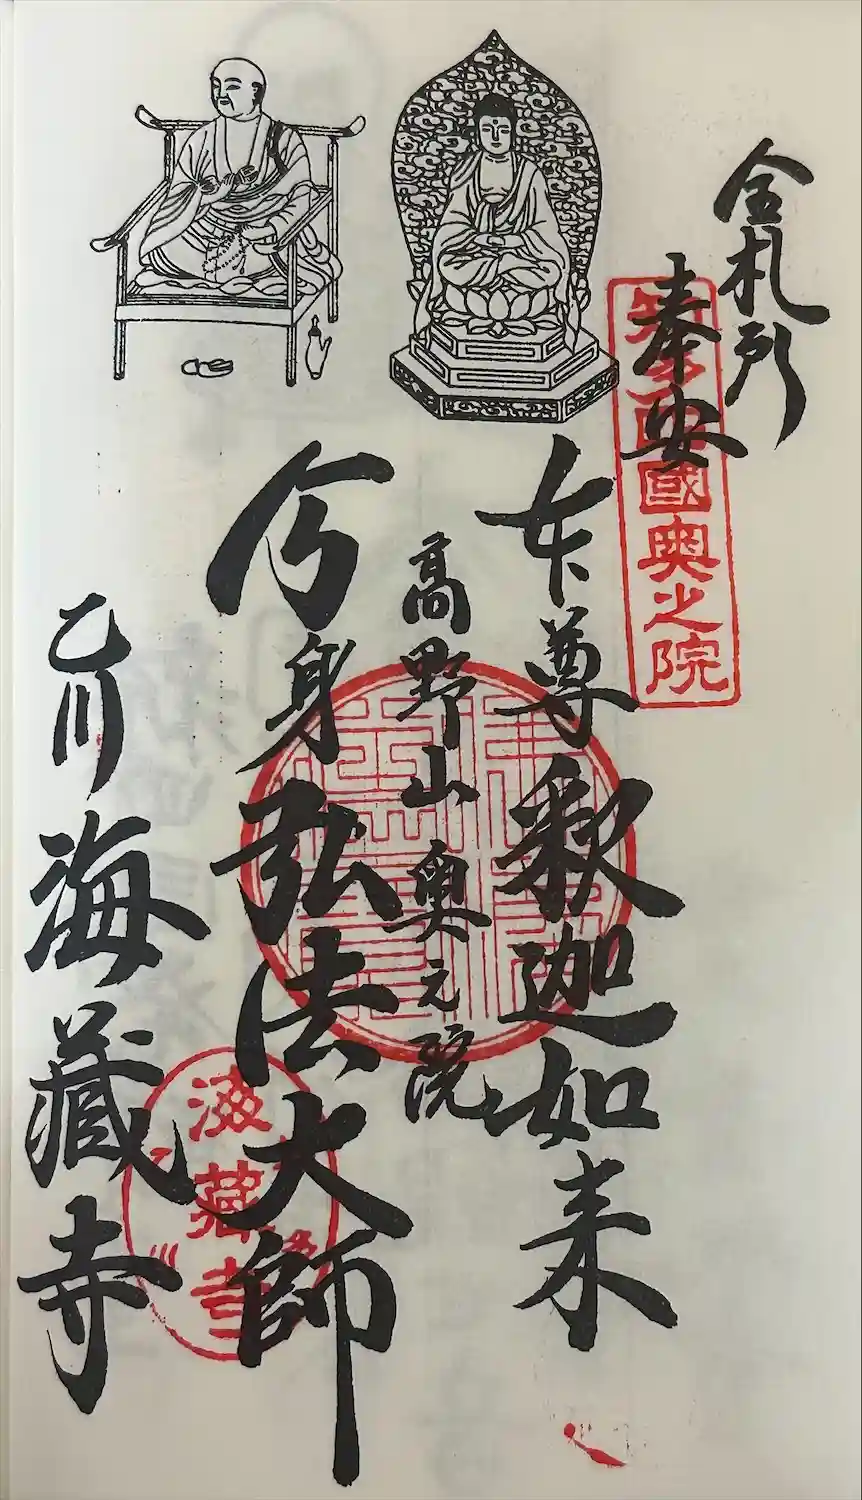 全札所
奉安
知多四國奥之院
本尊釈迦如来
高野山奥之院
分身弘法大師
乙川海藏寺
海藏寺